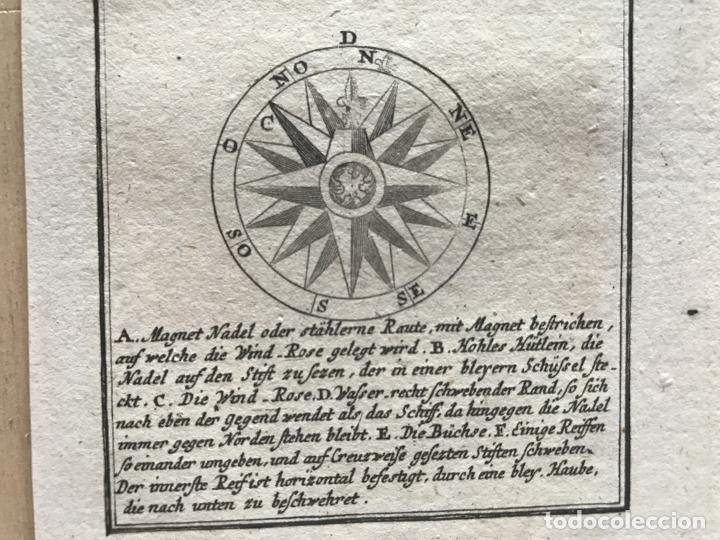 D
NO N NE
C
O E
SO SE
S
A. Magnet Nadel oder stählerne Raute, mit Magnet bestrichen,
auf welche die Wind-Rose gelegt wird. B. Hohles Hütlein, die
Nadel auf den Stift zu sezen, der in einer bleyern Schüssel ste-
ckt. C. Die Wind-Rose. D. Wasser-recht schwebender Rand, so sich
nach eben der Gegend wendet als das Schiff, da hingegen die Nadel
immer gegen Norden stehen bleibt. E. Die Büchse. F. Einige Reiffen
so einander umgeben, und auf Creuzweise gesezten Stiften schweben.
Der innerste Reif ist horizontal befestigt, durch eine bley. Haube,
die nach unten zu beschwehret.
todocoleccion